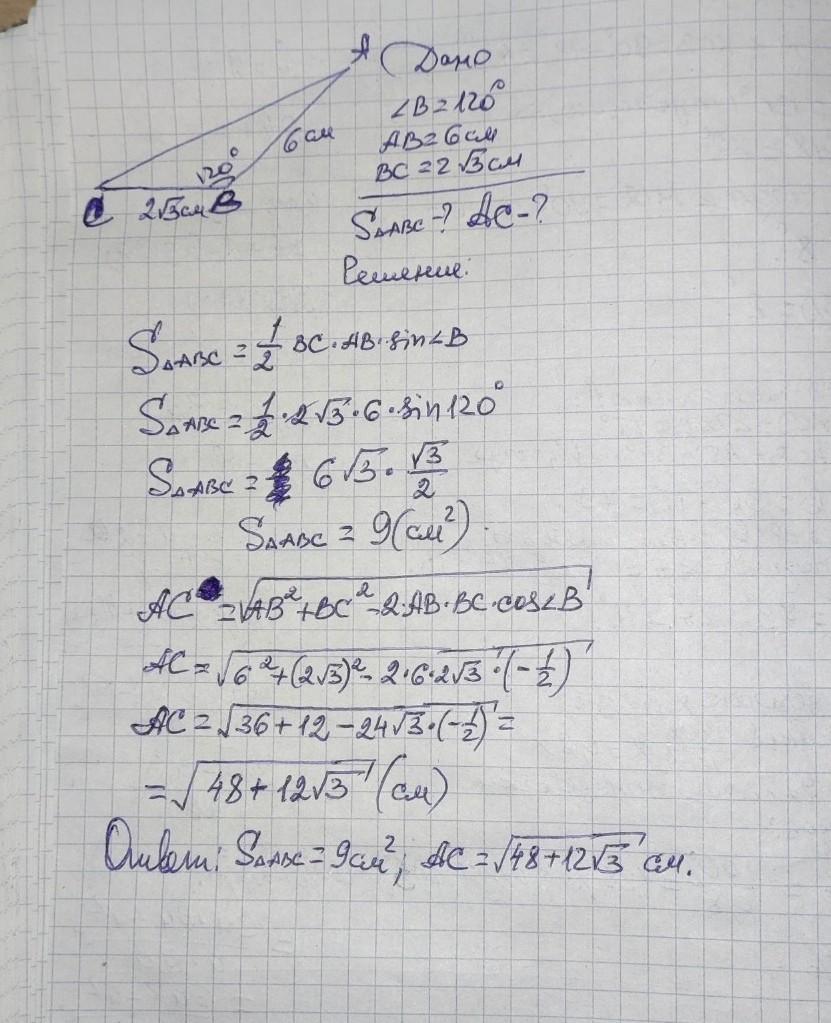 A
Дано
∠B=120°
6 см
AB=6см
120°
BC=2√3см
C 2√3см B
S△ABC-? AC-?
Решение:
S△ABC = 1/2 BC·AB·sin∠B
S△ABC = 1/2·2√3·6·sin120°
S△ABC = 6√3·√3/2
S△ABC = 9(см²).
AC =√(AB²+BC²-2·AB·BC·cos∠B)
AC=√(6²+(2√3)²-2·6·2√3·(-1/2))
AC=√(36+12-24√3·(-1/2))=
=√(48+12√3) (см)
Ответ: S△ABC=9см², AC=√(48+12√3) см.